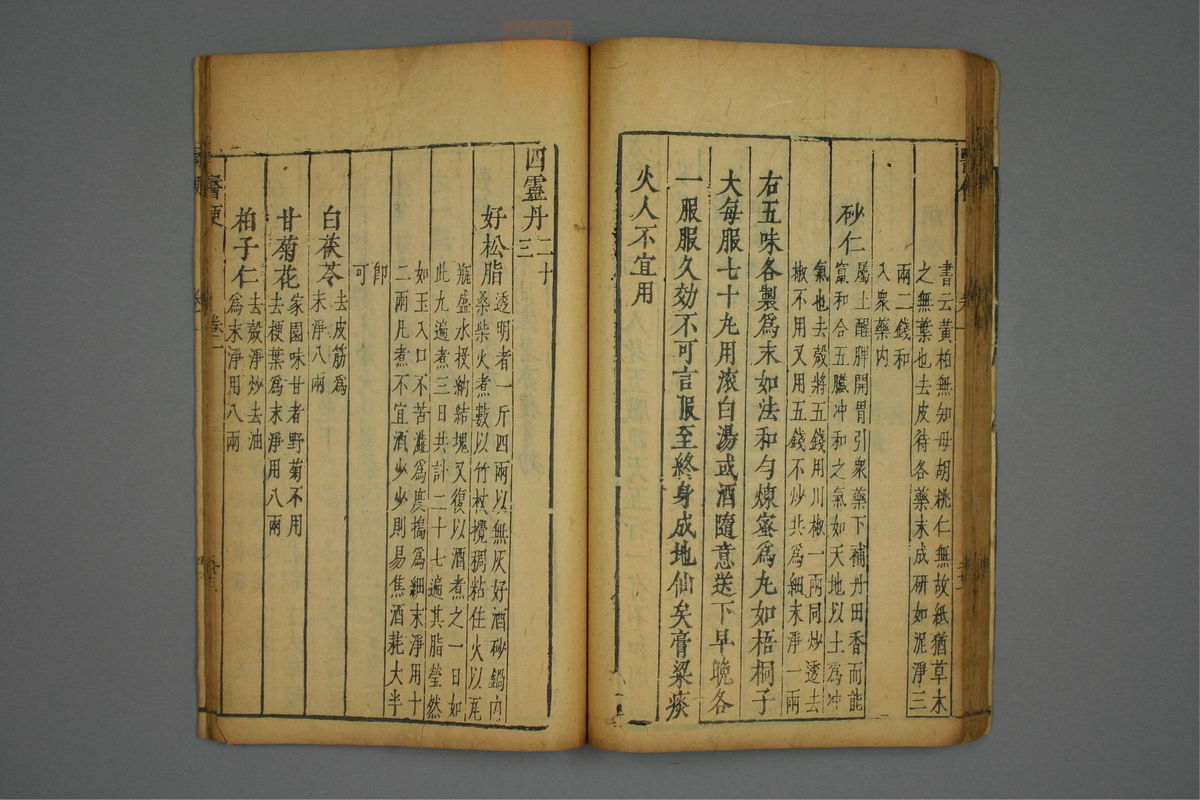 書云黃柏無知母胡桃仁無故紙猶草木
之無葉也去皮待各藥末成研如泥淨三
兩二錢和
入衆藥內
砂仁
屬土醒脾開胃引衆藥下補丹田香而能
竄和合五臟冲和之氣如天地以土爲冲
氣也去殼將五錢用川椒一兩同炒透去
椒不用又用五錢不炒共爲細末淨一兩
右五味各製爲末如法和勻煉蜜爲丸如梧桐子
大每服七十丸用滾白湯或酒隨意送下早晚各
一服服久効不可言服至終身成地仙矣膏粱痰
火人不宜用
四靈丹二十三
好松脂
透明者一斤四兩以無灰好酒砂鍋內
桑柴火煮數以竹杖攪稠粘住火以尾
瓶盛水投納結塊又復以酒煮之一日如
此九遍煮三日共計二十七遍其脂瑩然
如玉入口不苦澁爲度搗爲細末淨用十
二兩凡煮不宜酒少少則易焦酒耗大半
卽
可
白茯苓
去皮筋爲
末淨八兩
甘菊花
家園味甘者野菊不用
去梗葉爲末淨用八兩
柏子仁
去殼淨炒去油
爲末淨用八兩
醫便
卷二